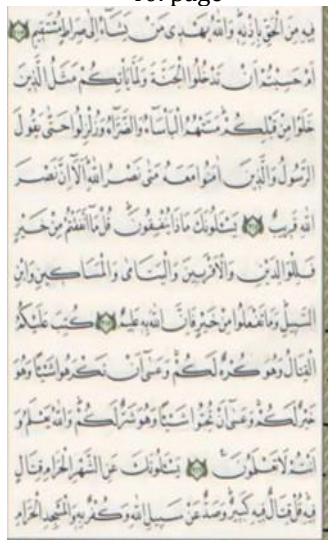 page
فِيهِ مِنَ الْحَقِّ بِإِذْنِهِ وَاللّٰهُ يَهْدِى مَنْ يَشَآءُ اِلٰى صِرَاطٍ مُسْتَقِيمٍ
اَمْ حَسِبْتُمْ اَنْ تَدْخُلُوا الْجَنَّةَ وَلَمَّا يَأْتِكُمْ مَثَلُ الَّذِينَ
خَلَوْا مِنْ قَبْلِكُمْ مَسَّتْهُمُ الْبَأْسَآءُ وَالضَّرَّآءُ وَزُلْزِلُوا حَتّٰى يَقُولَ
الرَّسُولُ وَالَّذِينَ اٰمَنُوا مَعَهُ مَتٰى نَصْرُ اللّٰهِ اَلَآ اِنَّ نَصْرَ
اللّٰهِ قَرِيبٌ يَسْـَٔلُونَكَ مَاذَا يُنْفِقُونَ قُلْ مَآ اَنْفَقْتُمْ مِنْ خَيْرٍ
فَلِلْوَالِدَيْنِ وَالْاَقْرَبِينَ وَالْيَتَامٰى وَالْمَسَاكِينِ وَابْنِ
السَّبِيلِ وَمَا تَفْعَلُوا مِنْ خَيْرٍ فَاِنَّ اللّٰهَ بِهِ عَلِيمٌ كُتِبَ عَلَيْكُمُ
الْقِتَالُ وَهُوَ كُرْهٌ لَكُمْ وَعَسٰٓى اَنْ تَكْرَهُوا شَيْـًٔا وَهُوَ
خَيْرٌ لَكُمْ وَعَسٰٓى اَنْ تُحِبُّوا شَيْـًٔا وَهُوَ شَرٌّ لَكُمْ وَاللّٰهُ يَعْلَمُ وَ
اَنْتُمْ لَا تَعْلَمُونَ يَسْـَٔلُونَكَ عَنِ الشَّهْرِ الْحَرَامِ قِتَالٍ
فِيهِ قُلْ قِتَالٌ فِيهِ كَبِيرٌ وَصَدٌّ عَنْ سَبِيلِ اللّٰهِ وَكُفْرٌ بِهِ وَالْمَسْجِدِ الْحَرَامِ